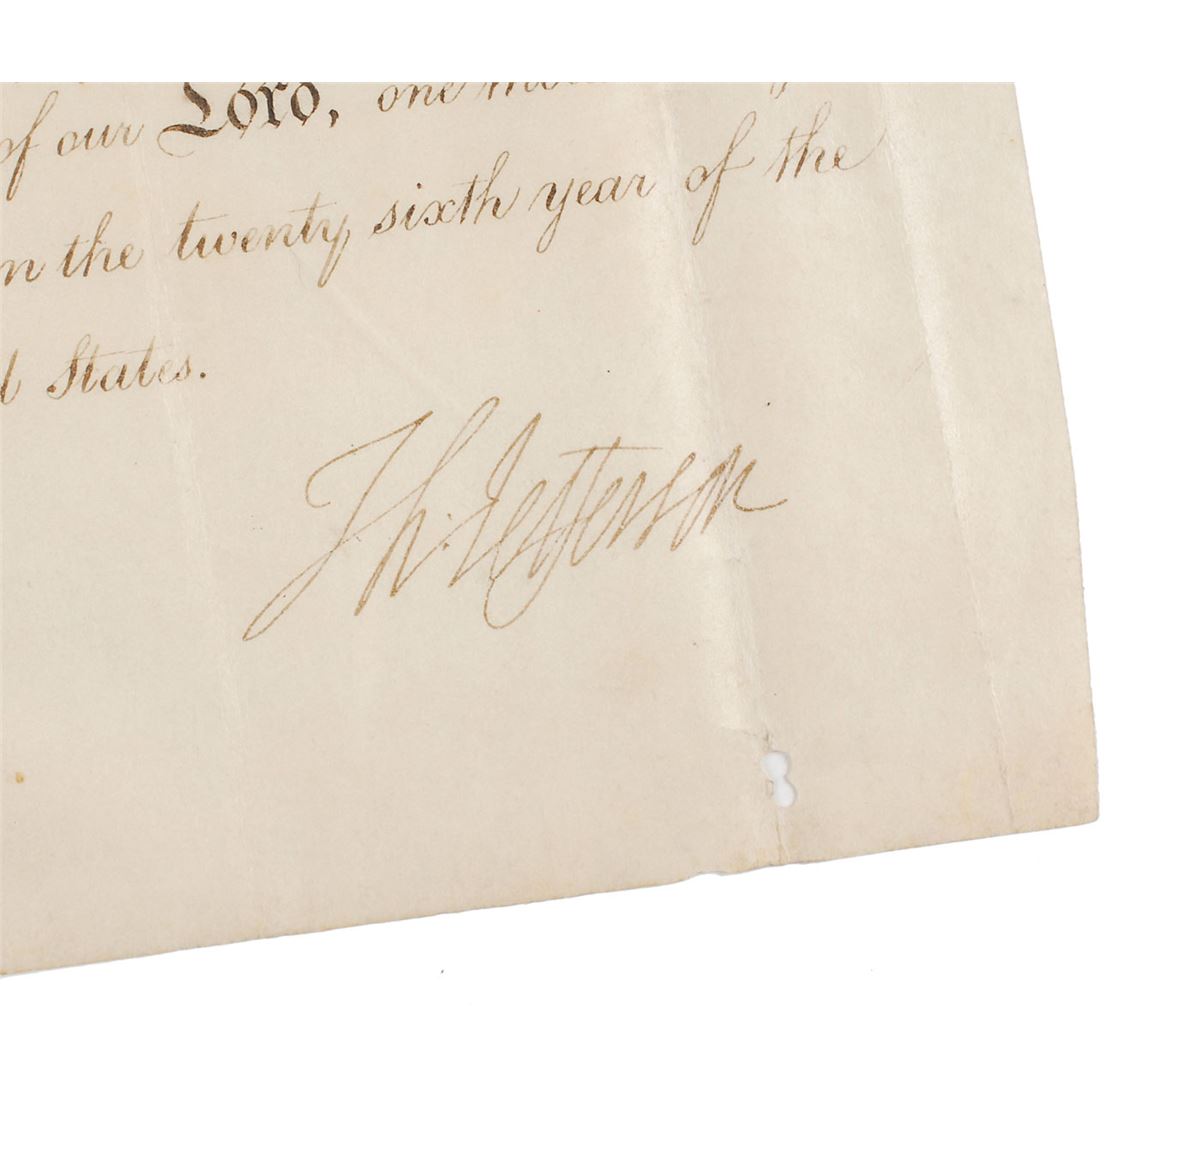 of our Lord, one
the twenty sixth year of the
States.
Th: Jefferson